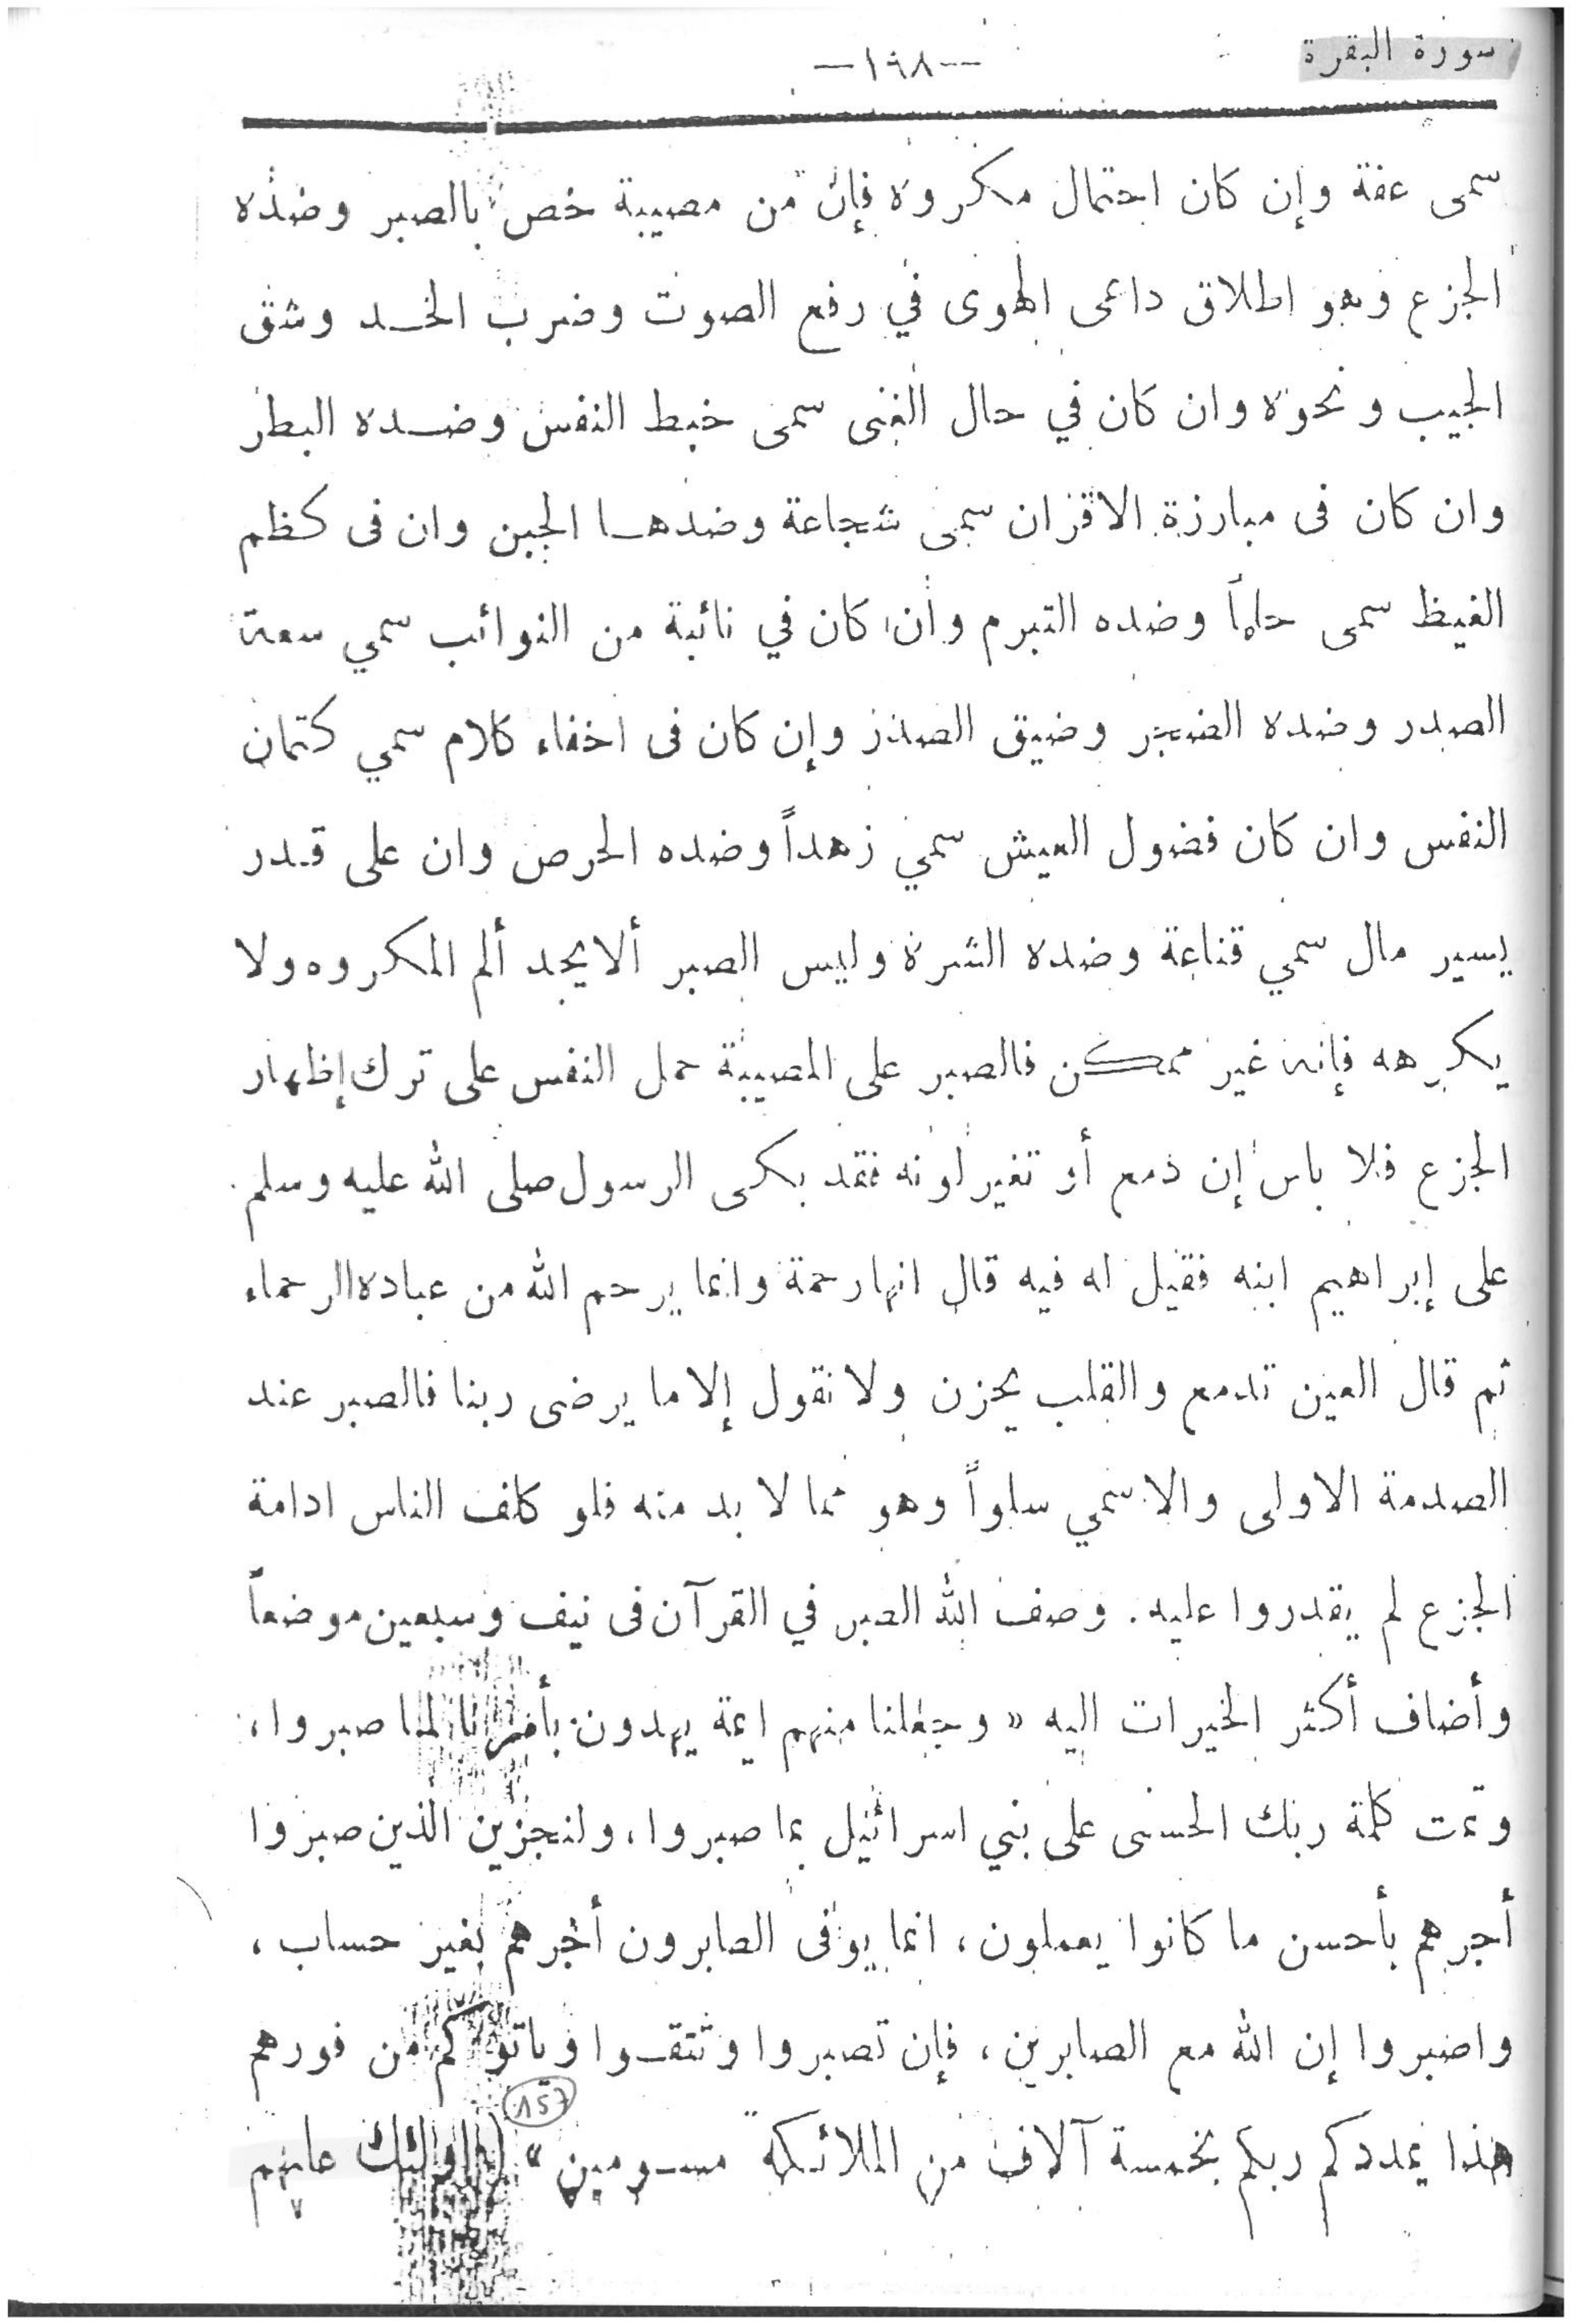 سورة البقرة
—١٩٨—
سمى عفة وإن كان احتمال مكروه فإن من مصيبة خص بالصبر وضده
الجزع وهو اطلاق داعى الهوى في رفع الصوت وضرب الخد وشق
الجيب ونحوه وان كان في حال الغنى سمى ضبط النفس وضده البطر
وان كان فى مبارزة الاقران سمى شجاعة وضدها الجبن وان فى كظم
الغيظ سمى حلماً وضده التبرم وان كان في نائبة من النوائب سمي سعة
الصدر وضده الضجر وضيق الصدر وإن كان فى اخفاء كلام سمي كتمان
النفس وان كان فضول العيش سمي زهداً وضده الحرص وان على قدر
يسير مال سمي قناعة وضده الشره وليس الصبر ألا يجد ألم المكروه ولا
يكرهه فإنه غير ممكن فالصبر على المصيبة حمل النفس على ترك إظهار
الجزع فلا باس إن دمع أو تغير لونه فقد بكى الرسول صلى الله عليه وسلم
على إبراهيم ابنه فقيل له فيه قال انها رحمة وانما يرحم الله من عباده الرحماء
ثم قال العين تدمع والقلب يحزن ولا نقول إلا ما يرضى ربنا فالصبر عند
الصدمة الاولى والا سمي سلواً وهو مما لا بد منه فلو كلف الناس ادامة
الجزع لم يقدروا عليه. وصف الله الصبر في القرآن فى نيف وسبعين موضعاً
وأضاف أكثر الخيرات اليه « وجعلنا منهم ايمة يهدون بأمرنا لما صبروا،
وتمت كلمة ربك الحسنى على بني اسرائيل بما صبروا، ولنجزين الذين صبروا
أجرهم بأحسن ما كانوا يعملون، انما يوفى الصابرون أجرهم بغير حساب،
واصبروا إن الله مع الصابرين، فإن تصبروا وتتقوا وياتوكم من فورهم
هذا يمددكم ربكم بخمسة آلاف من الملائكة مسومين » اولئك عليهم
157